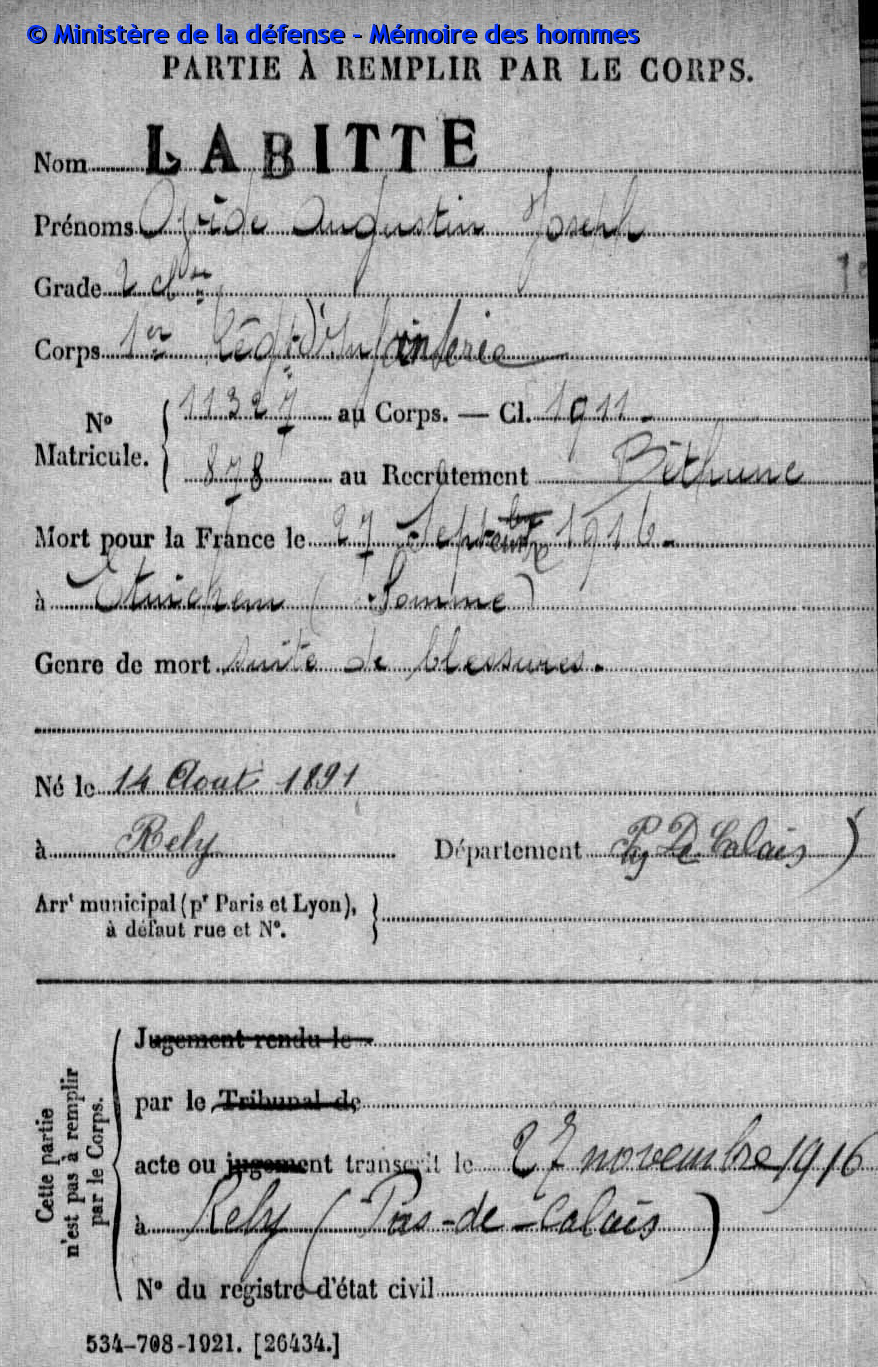 © Ministère de la défense - Mémoire des hommes
PARTIE À REMPLIR PAR LE CORPS.
Nom LABITTE
Prénoms Augustin Joseph
Grade 2 cl
Corps 1er Régt d'Infanterie
N° Matricule. { 11327 au Corps. — Cl. 1911.
878 au Recrutement Béthune
Mort pour la France le 27 Septembre 1916.
à Etinehem (Somme)
Genre de mort suite de blessures.
Né le 14 Aout 1891
à Rely Département Pas De Calais)
Arrt municipal (pr Paris et Lyon), }
à défaut rue et N°.
Cette partie n'est pas à remplir par le Corps.
Jugement rendu le
par le Tribunal de
acte ou jugement transcrit le 27 novembre 1916
à Rely (Pas-de-Calais)
N° du registre d'état civil
534-708-1921. [26434.]